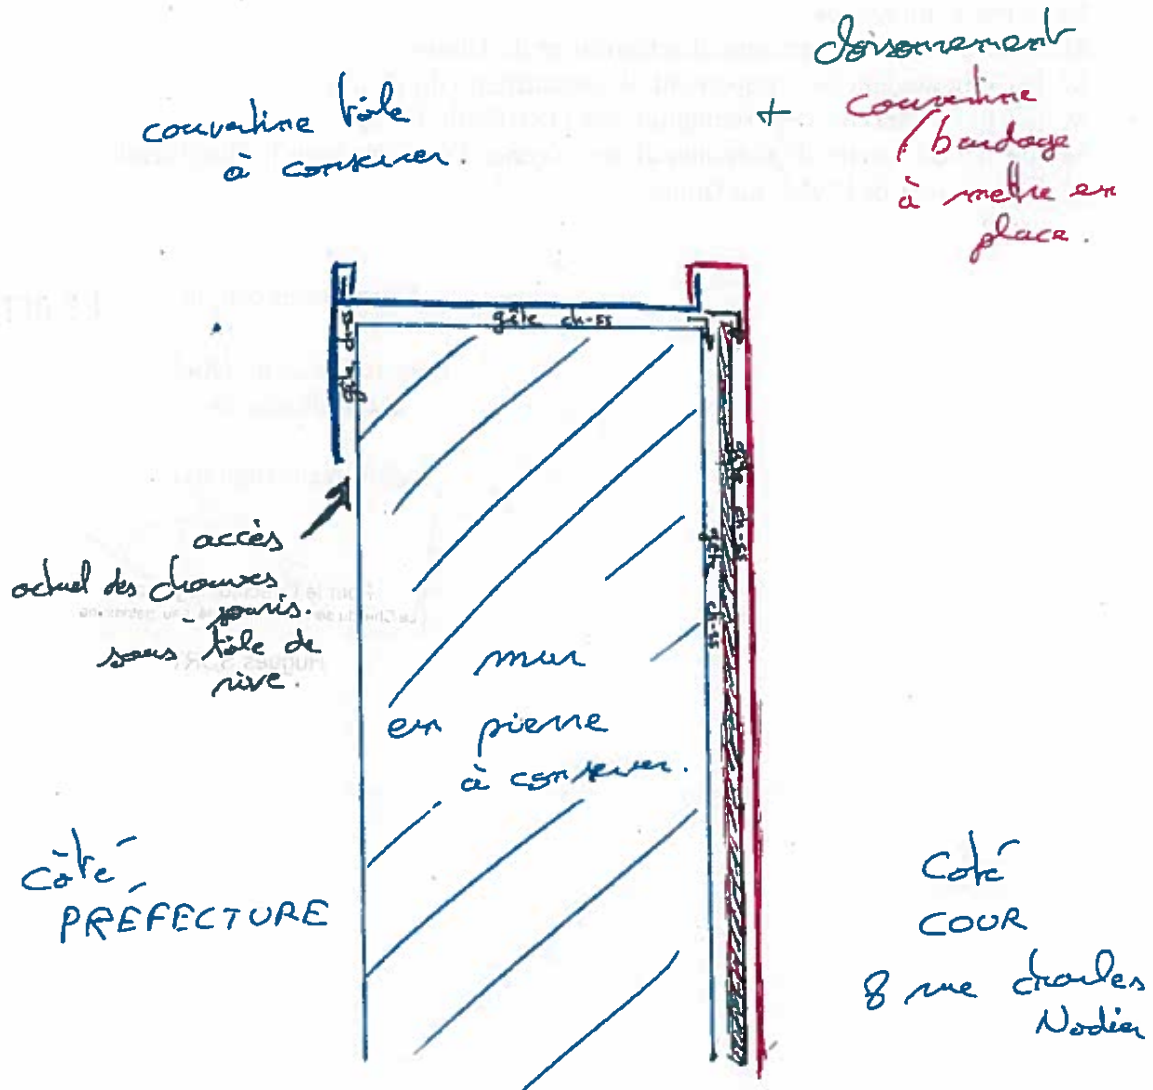 couvertine tôle
à conserver.
cloisonnement
+ couvertine
/ bardage
à metre en
place.
gîte ch-ss
gîte ch-ss
accès
actuel des chauves
-souris.
sous tôle de
rive.
mur
en pierre
à conserver.
gîte ch-ss
gîte ch-ss
Côté
PRÉFECTURE
Coté
COUR
8 rue Charles
Nodier
Hugues SORY